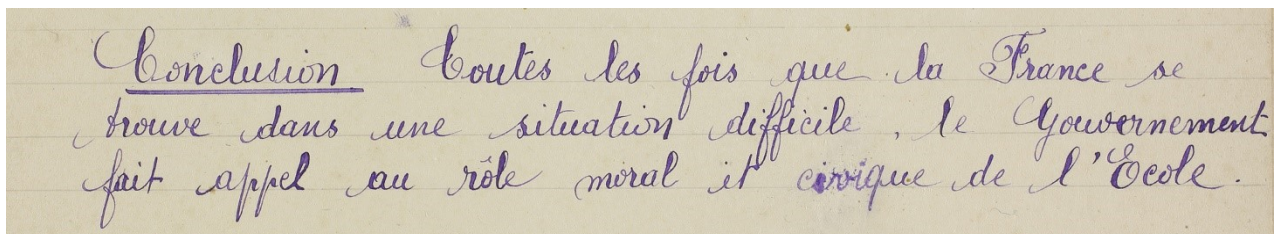 Conclusion Toutes les fois que la France se
trouve dans une situation difficile, le Gouvernement
fait appel au rôle moral et civique de l'Ecole.